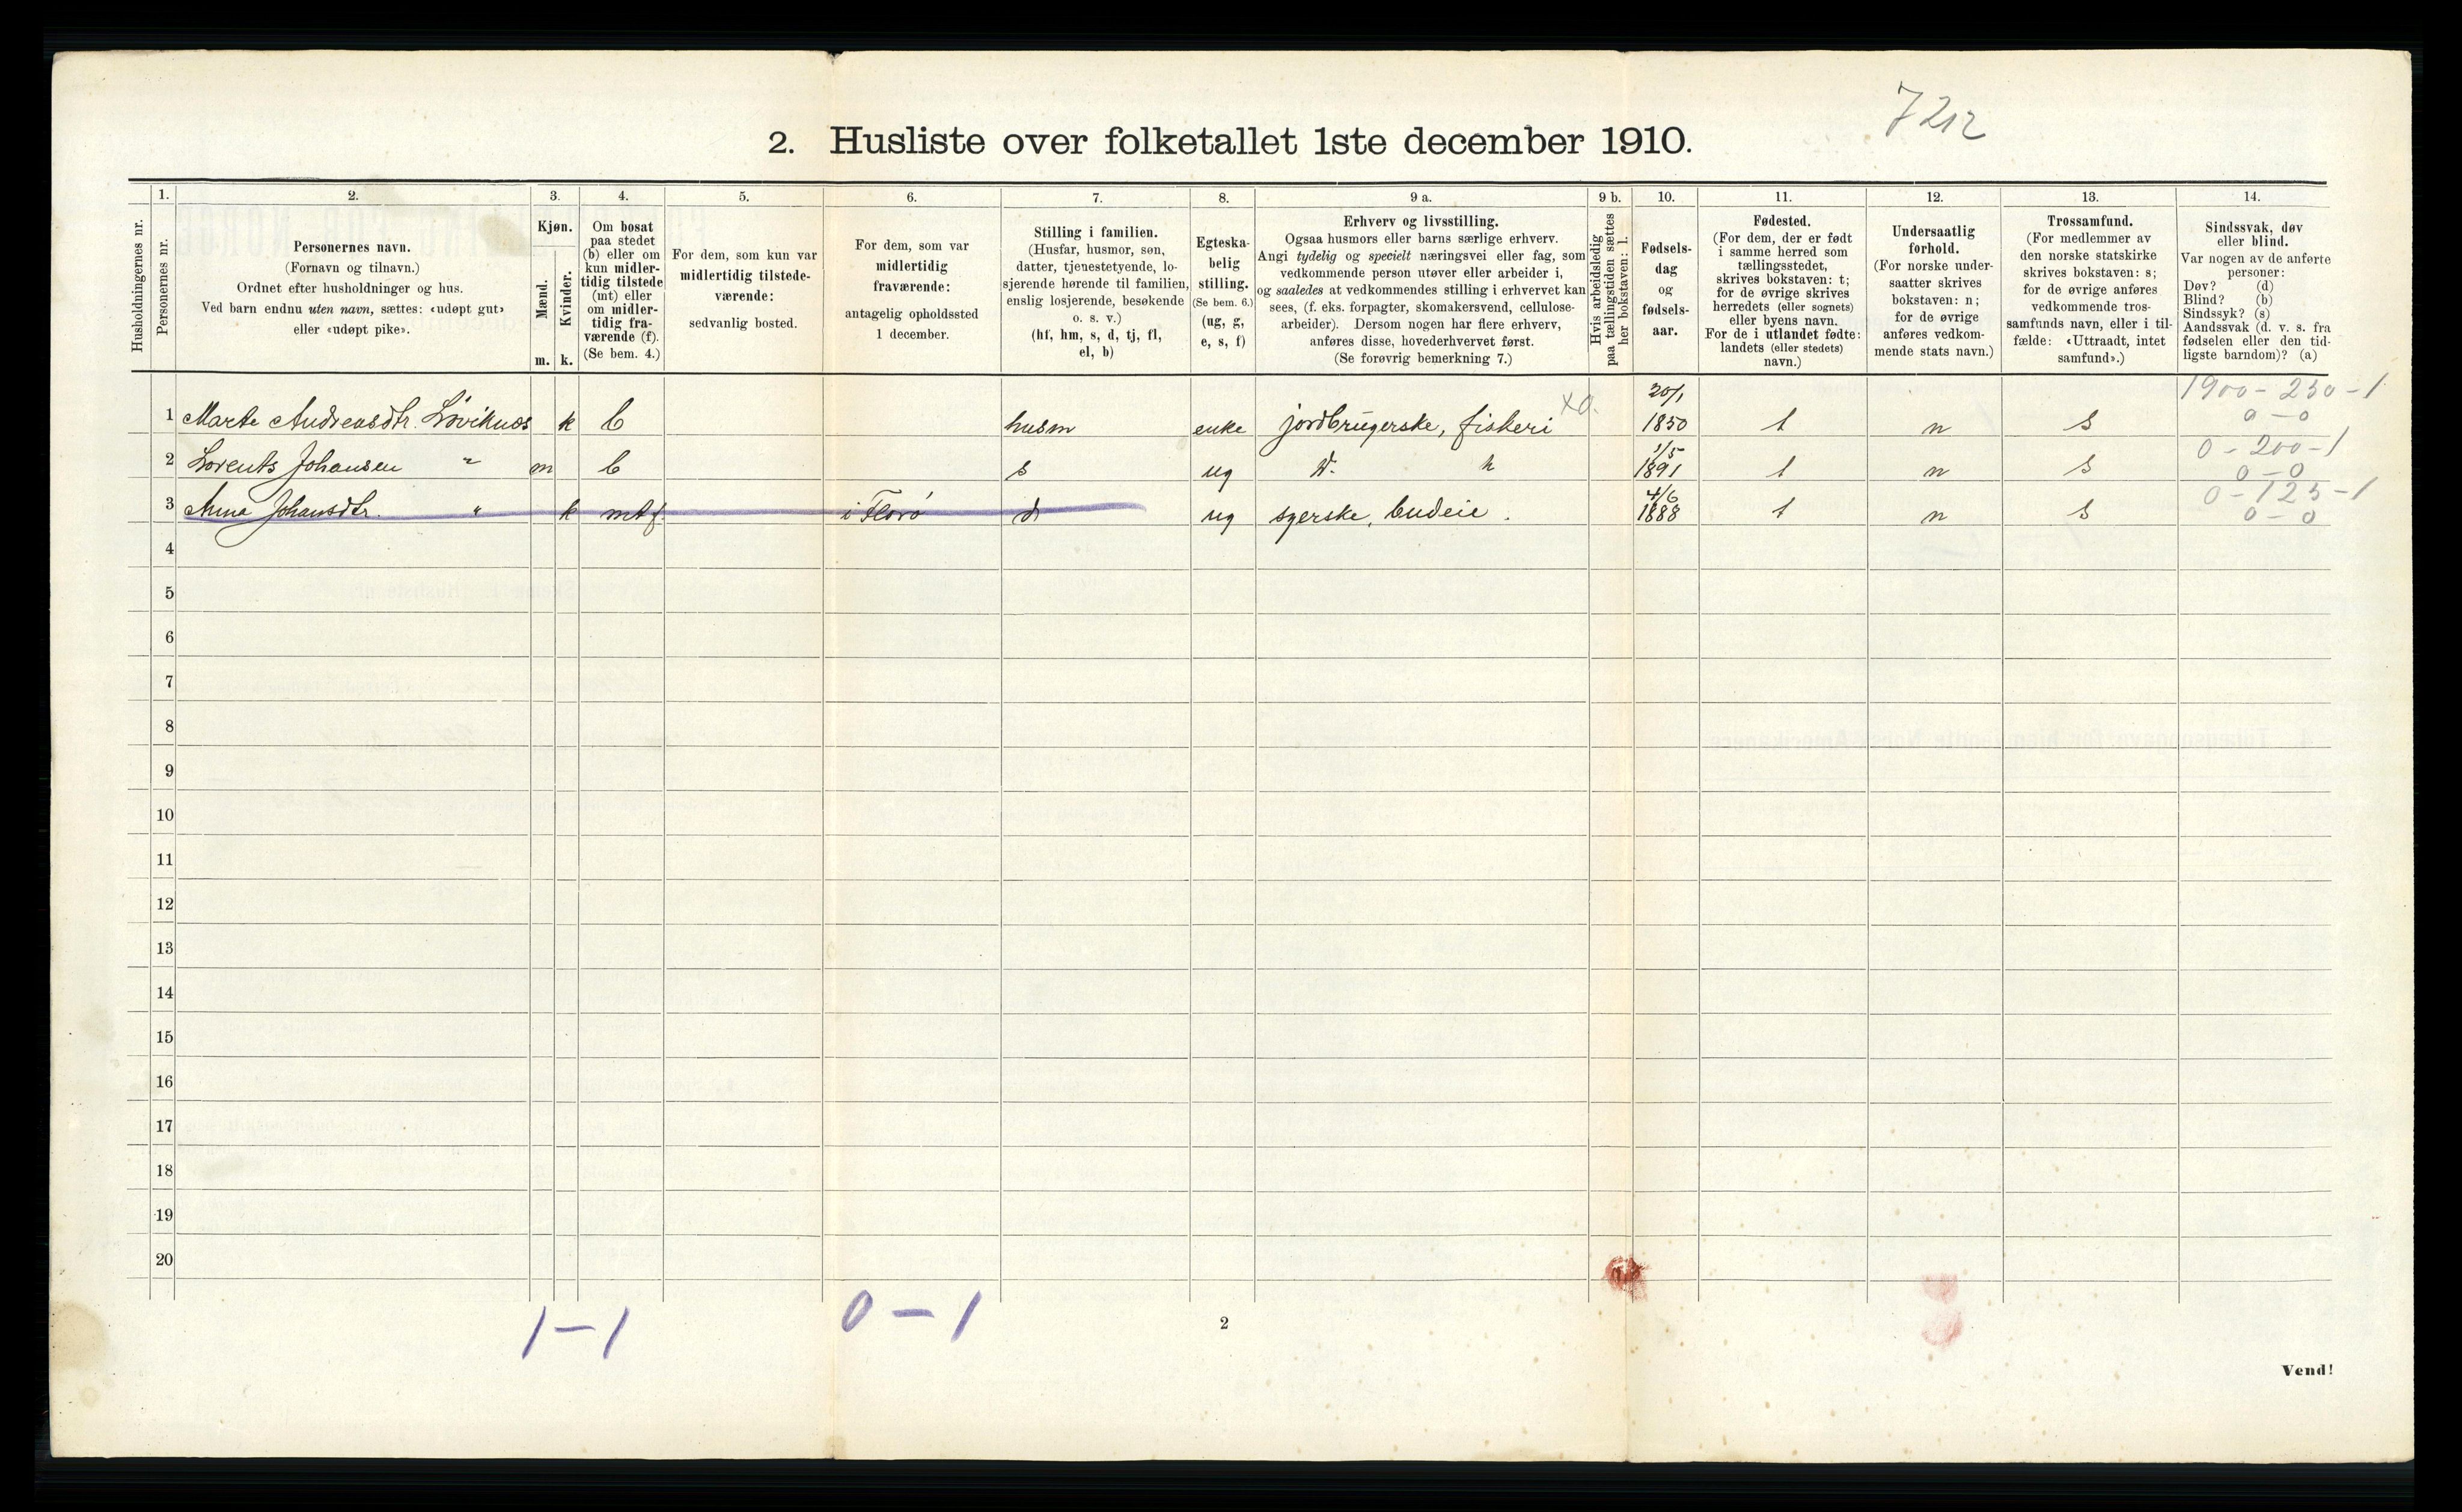 7212
2. Husliste over folketallet 1ste december 1910.
1. 2. 3. 4. 5. 6. 7. 8. 9 a. 9 b. 10. 11. 12. 13. 14.
Husholdningernes nr.
Personernes nr.
Personernes navn.
(Fornavn og tilnavn.)
Ordnet efter husholdninger og hus.
Ved barn endnu uten navn, sættes: «udøpt gut»
eller «udøpt pike».
Kjøn.
Mænd.
Kvinder.
m. k.
Om bosat
paa stedet
(b) eller om
kun midler-
tidig tilstede
(mt) eller
om midler-
tidig fra-
værende (f).
(Se bem. 4.)
For dem, som kun var
midlertidig tilstede-
værende:
sedvanlig bosted.
For dem, som var
midlertidig
fraværende:
antagelig opholdssted
1 december.
Stilling i familien.
(Husfar, husmor, søn,
datter, tjenestetyende, lo-
sjerende hørende til familien,
enslig losjerende, besøkende
o. s. v.)
(hf, hm, s, d, tj, fl,
el, b)
Egteska-
belig
stilling.
(Se bem. 6.)
(ug, g,
e, s, f)
Erhverv og livsstilling.
Ogsaa husmors eller barns særlige erhverv.
Angi tydelig og specielt næringsvei eller fag, som
vedkommende person utøver eller arbeider i,
og saaledes at vedkommendes stilling i erhvervet kan
sees, (f. eks. forpagter, skomakersvend, cellulose-
arbeider). Dersom nogen har flere erhverv,
anføres disse, hovederhvervet først.
(Se forøvrig bemerkning 7.)
Hvis arbeidsledig
paa tællingstiden sættes
her bokstaven: l.
Fødsels-
dag
og
fødsels-
aar.
Fødested.
(For dem, der er født
i samme herred som
tællingsstedet,
skrives bokstaven: t;
for de øvrige skrives
herredets (eller sognets)
eller byens navn.
For de i utlandet fødte:
landets (eller stedets)
navn.)
Undersaatlig
forhold.
(For norske under-
saatter skrives
bokstaven: n;
for de øvrige
anføres vedkom-
mende stats navn.)
Trossamfund.
(For medlemmer av
den norske statskirke
skrives bokstaven: s;
for de øvrige anføres
vedkommende tros-
samfunds navn, eller i til-
fælde: «Uttraadt, intet
samfund».)
Sindssvak, døv
eller blind.
Var nogen av de anførte
personer:
Døv? (d)
Blind? (b)
Sindssyk? (s)
Aandssvak (d. v. s. fra
fødselen eller den tid-
ligste barndom)? (a)
20/1 1900 - 250 - 1
1 Marte Andreasdtr. Løviknes k b husm enke jordbrugerske, fiskeri X0. 1850 t n s 0 - 0
1/5 0 - 200 - 1
2 Lorents Johansen " m b s ug 1891 t n s 0 - 0
4/6 0 - 125 - 1
3 Anna Johansdtr. " k mt f. i Florø d ug syerske, budeie. 1888 t n s 0 - 0
4
5
6
7
8
9
10
11
12
13
14
15
16
17
18
19
20
1 - 1 0 - 1
2
Vend!